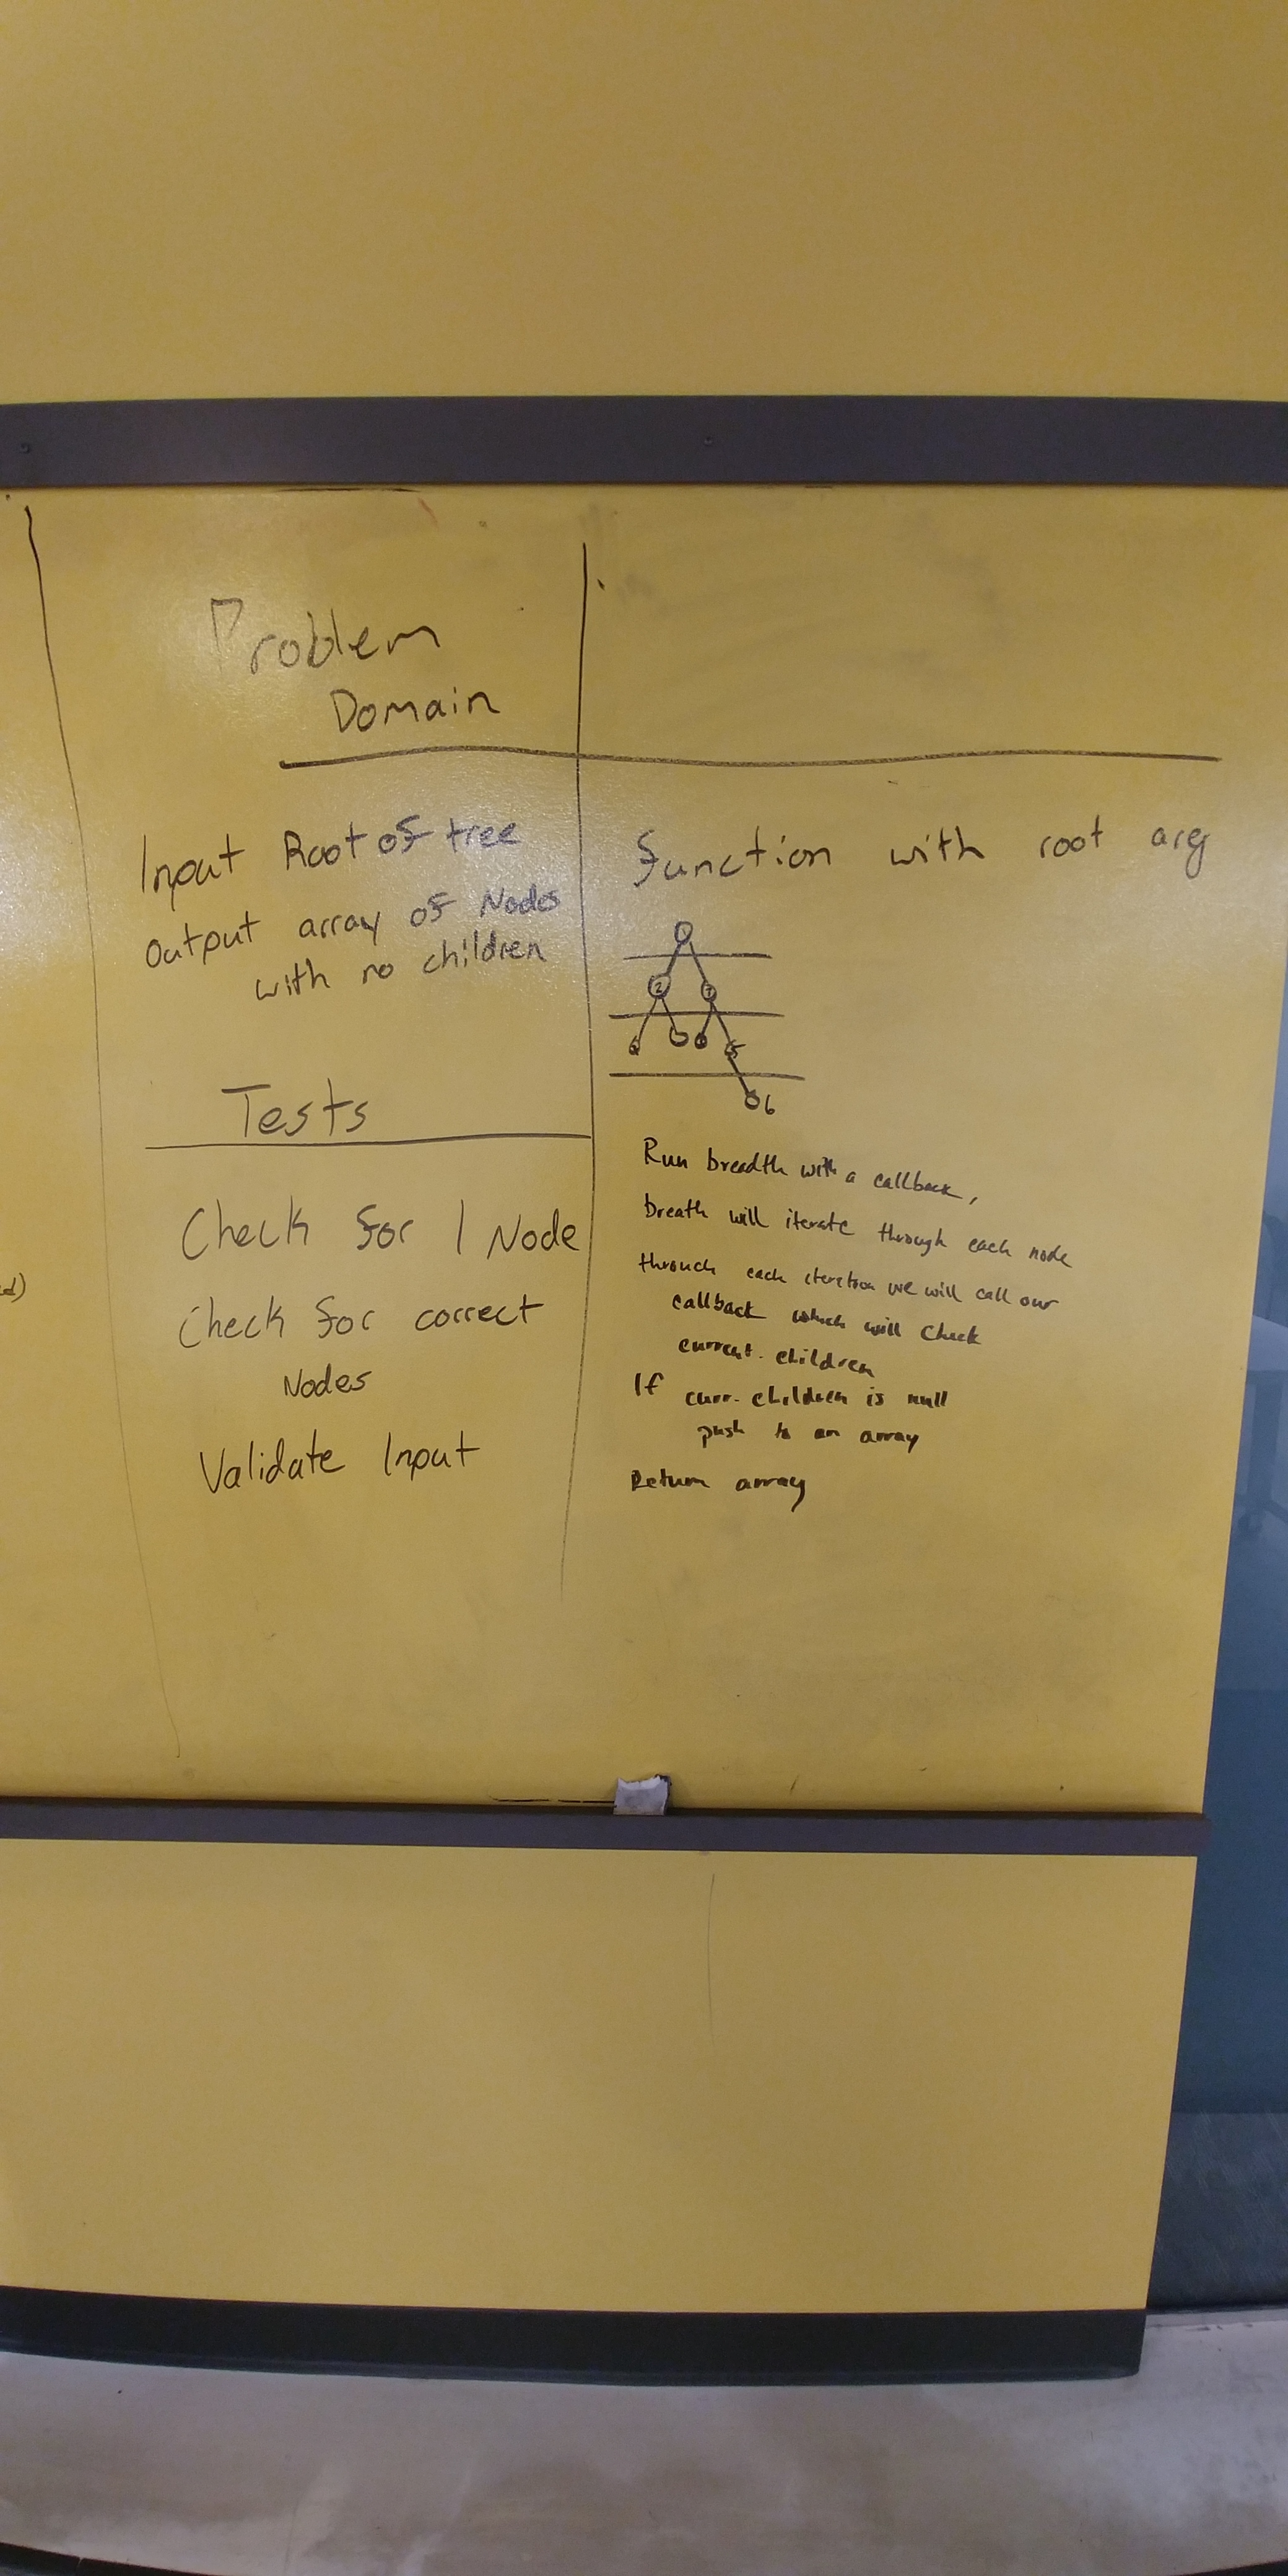 Problem
Domain
Input Root of tree
Output array of Nodes
with no children
Tests
Check for 1 Node
Check for correct
Nodes
Validate Input
function with root arg
2
6
Run breadth with a callback,
breath will iterate through each node
through each iteration we will call our
callback which will check
current. children
If curr. children is null
push to an array
Return array